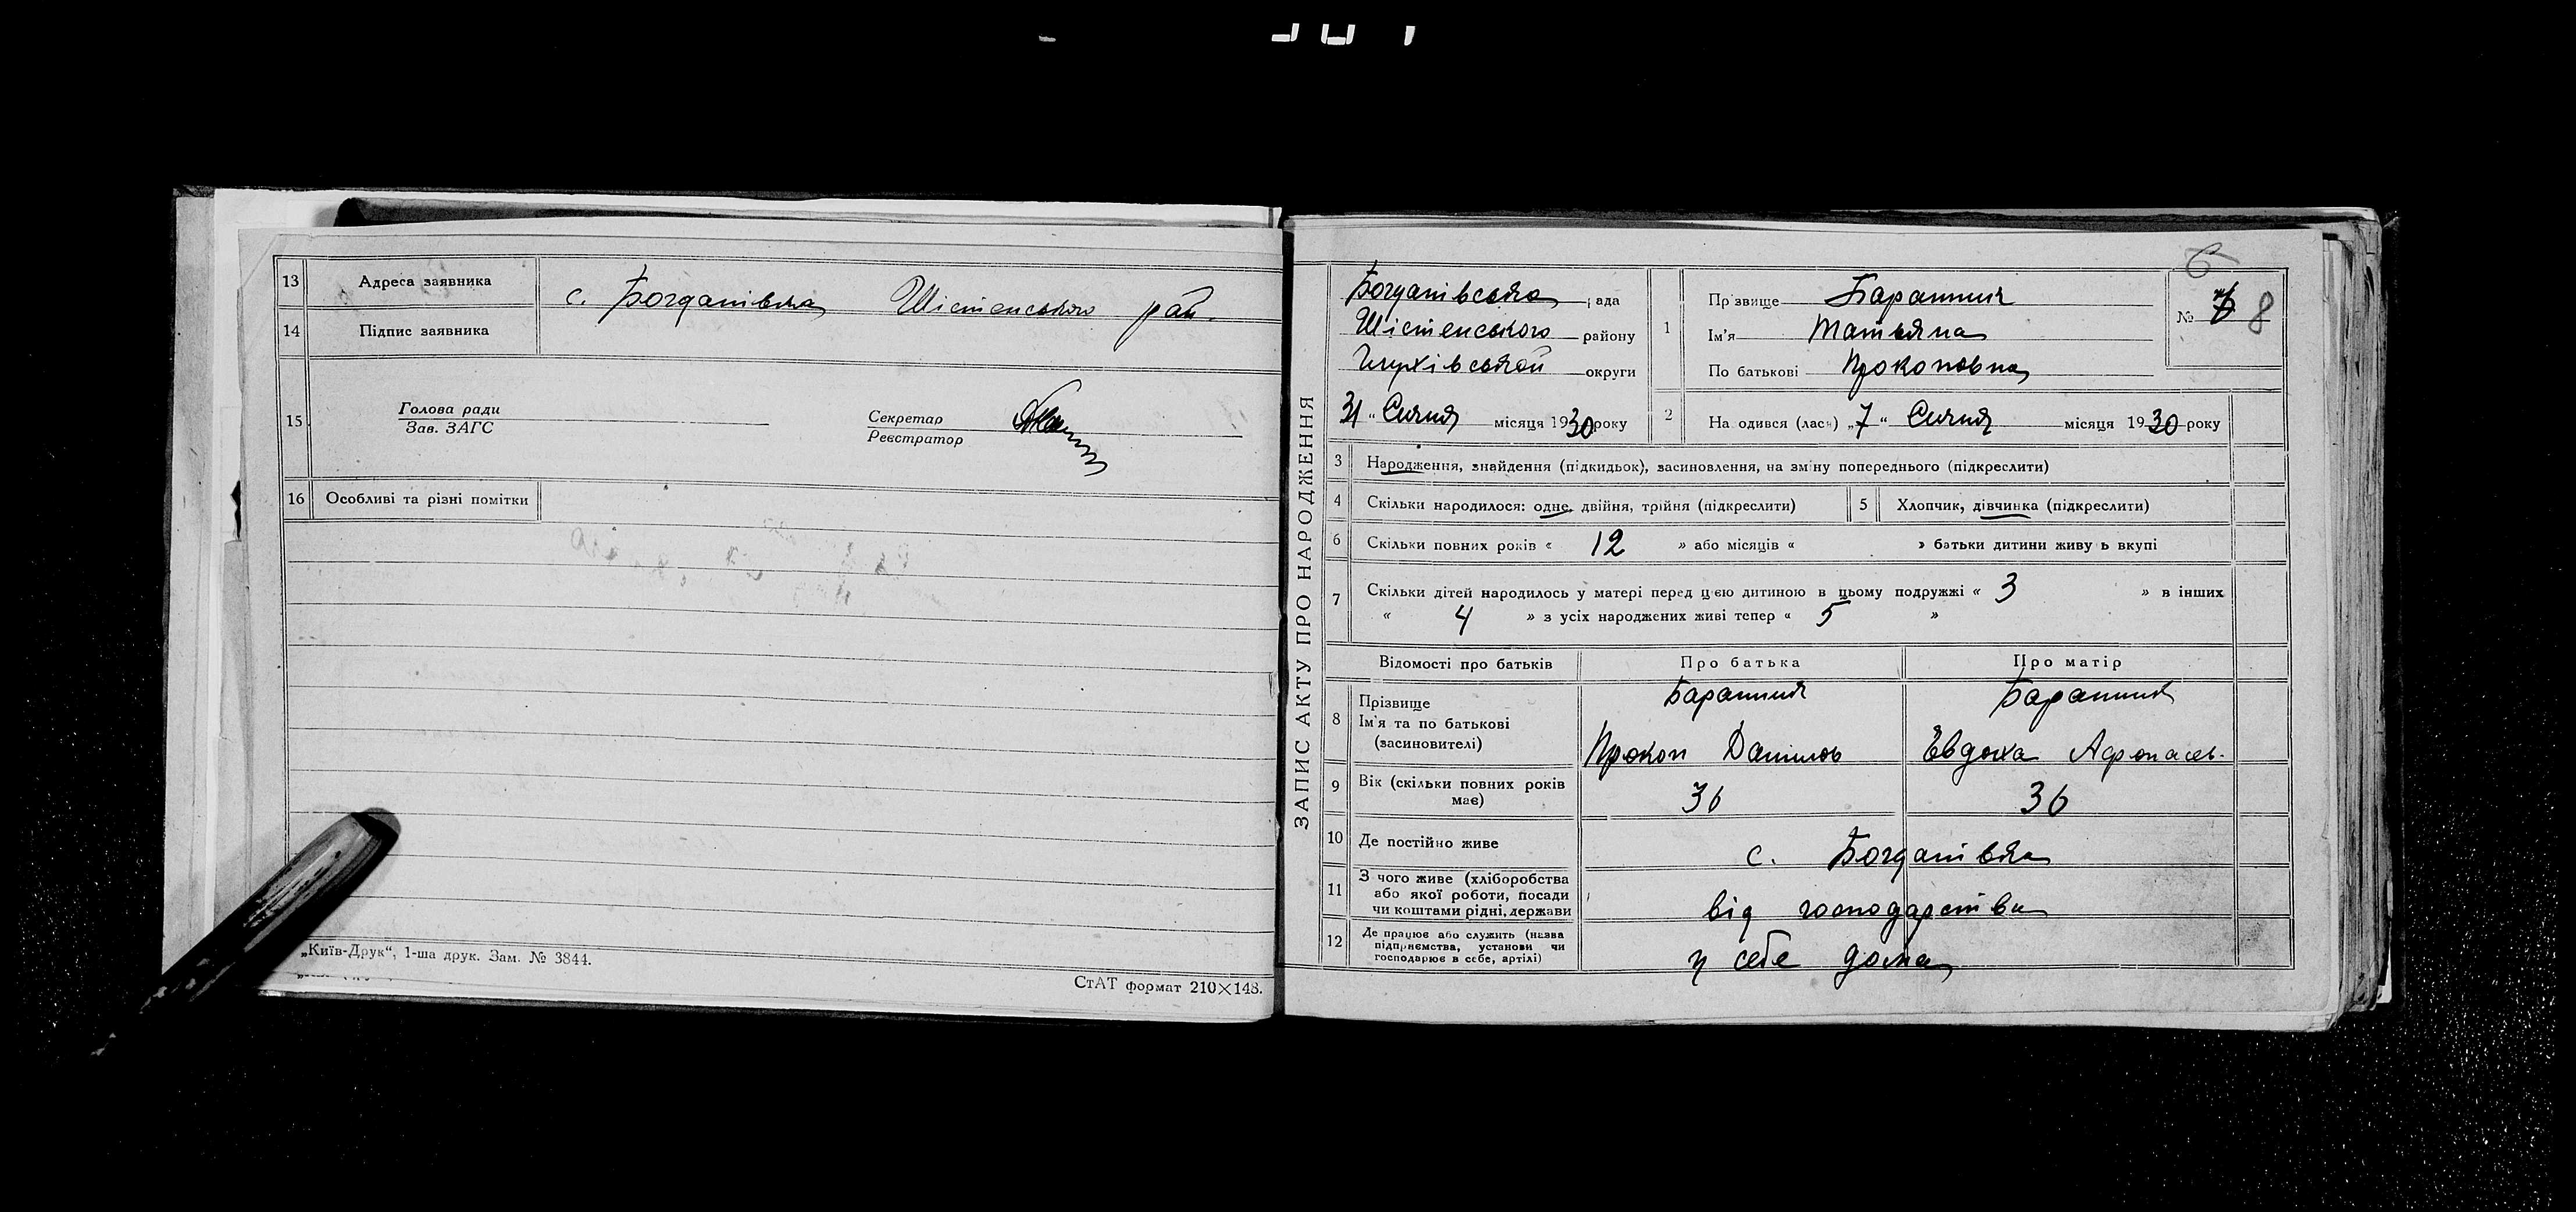 13 Адреса заявника с. Богданівка Шістенського рай.
14 Підпис заявника
15 Голова ради
Зав. ЗАГС
Секретар
Реєстратор
16 Особливі та різні помітки
„Київ-Друк“, 1-ша друк. Зам. № 3844.
СтАТ формат 210×148.
ЗАПИС АКТУ ПРО НАРОДЖЕННЯ
Богданівська рада
Шістенського району
округи
31 " Січня місяця 1930 року
1 Прізвище
Ім'я Татьяна
По батькові Прокоповна
№ 8
2 Народився (лась) „7 “ Січня місяця 1930 року
3 Народження, знайдення (підкидьок), засиновлення, на зміну попереднього (підкреслити)
4 Скільки народилося: одне, двійня, трійня (підкреслити) 5 Хлопчик, дівчинка (підкреслити)
6 Скільки повних років « 12 » або місяців « » батьки дитини живуть вкупі
7 Скільки дітей народилось у матері перед цією дитиною в цьому подружжі « 3 » в інших
« 4 » з усіх народжених живі тепер « 5 »
Відомості про батьків Про батька Про матір
8 Прізвище
Ім'я та по батькові
(засиновителі)
Прокоп Данилов Евдоха Афонасьь-
9 Вік (скільки повних років
має) 36 36
10 Де постійно живе с. Богданівка
11 З чого живе (хліборобства
або якої роботи, посади
чи коштами рідні, держави від господарства
12 Де працює або служить (назва
підприємства, установи чи
господарює в себе, артілі) у себе дома